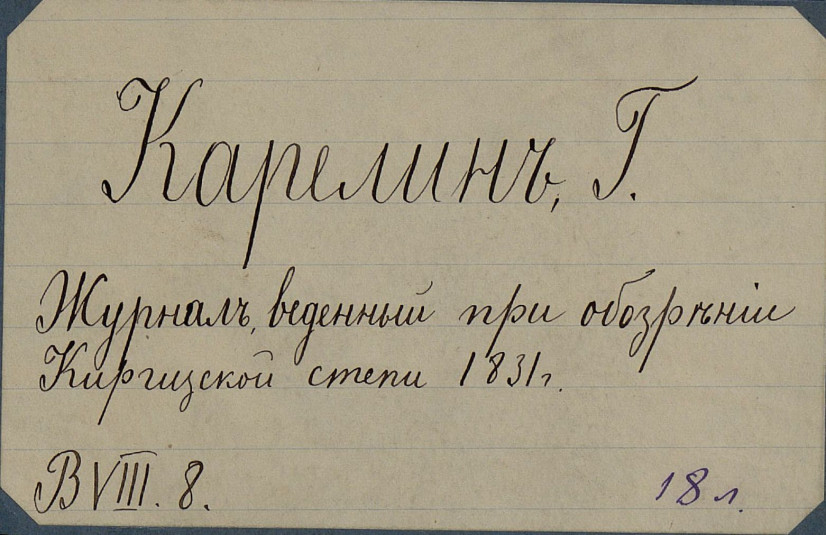 Карелинъ, Г.
Журналъ, веденный при обозрѣніи
Киргизской степи 1831г.
В VIII. 8.
18 л.